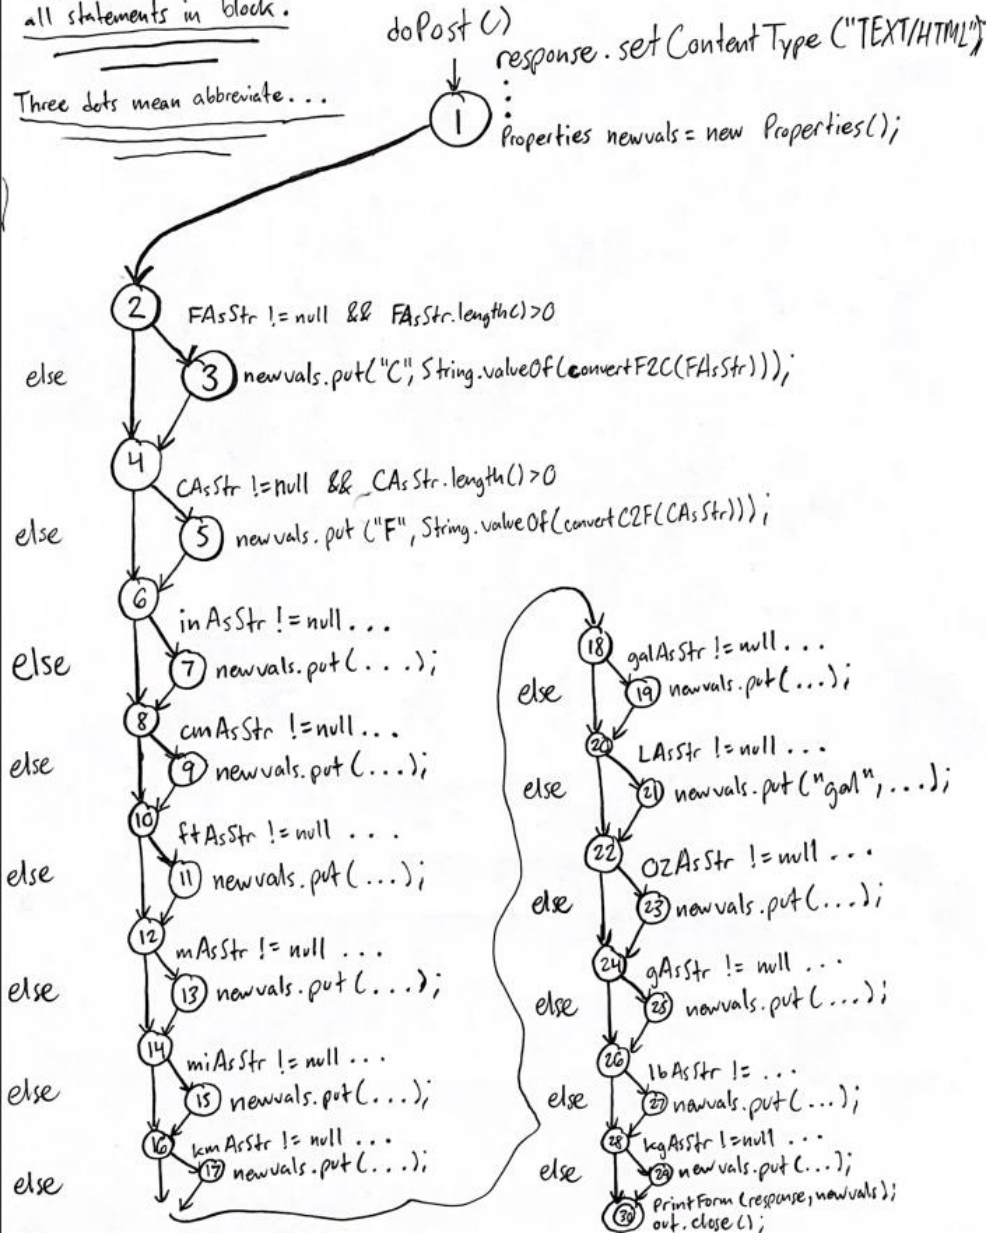 all statements in block.
Three dots mean abbreviate...
doPost()
response.setContentType("TEXT/HTML");
1
Properties newvals = new Properties();
2
FAsStr != null && FAsStr.length()>0
else
3
newvals.put("C", String.valueOf(convertF2C(FAsStr)));
4
CAsStr != null && CAsStr.length()>0
else
5
newvals.put("F", String.valueOf(convertC2F(CAsStr)));
6
inAsStr != null...
else
7
newvals.put(...);
8
cmAsStr != null...
else
9
newvals.put(...);
10
ftAsStr != null ...
else
11
newvals.put(...);
12
mAsStr != null ...
else
13
newvals.put(...);
14
miAsStr != null ...
else
15
newvals.put(...);
16
kmAsStr != null ...
else
17
newvals.put(...);
18
galAsStr != null...
else
19
newvals.put(...);
20
LAsStr != null ...
else
21
newvals.put("gal", ...);
22
OZAsStr != null ...
else
23
newvals.put(...);
24
gAsStr != null ...
else
25
newvals.put(...);
26
lbAsStr != ...
else
27
newvals.put(...);
28
kgAsStr != null ...
else
29
newvals.put(...);
30
printForm(response, newvals);
out.close();